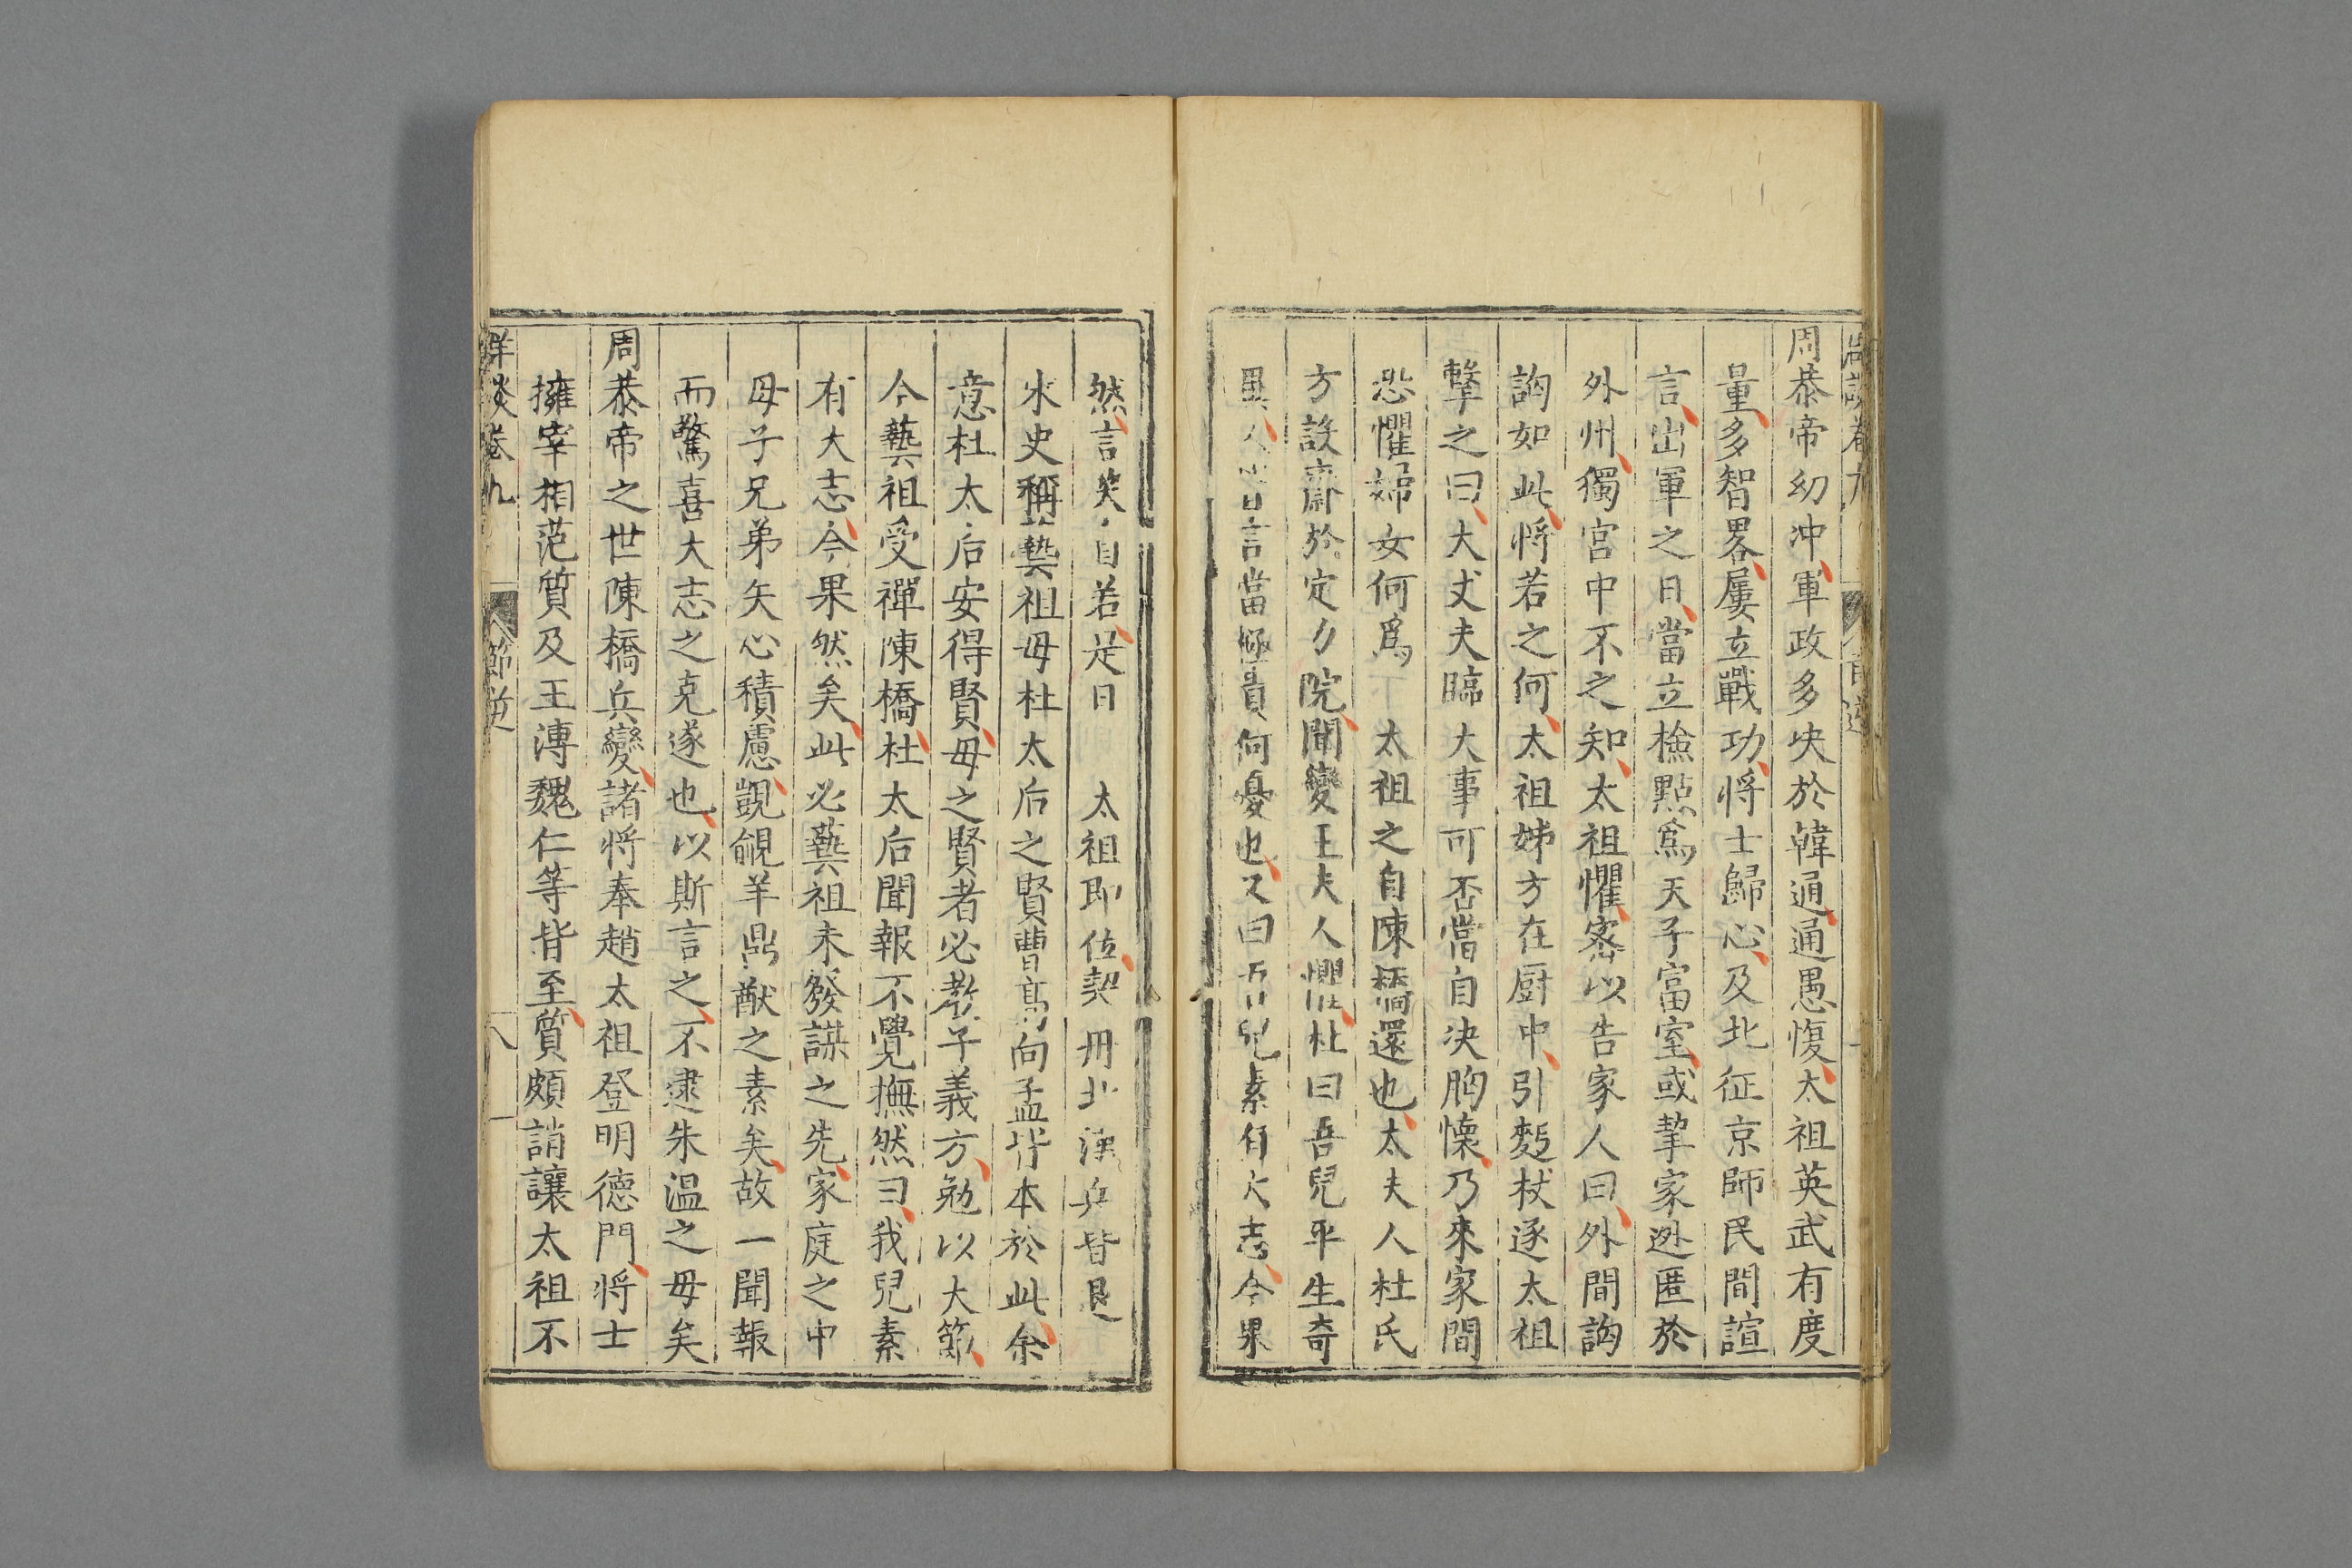 周恭帝幼冲軍政多决於韓通通愚愎太祖英武有度
量多智畧屢立戰功將士歸心及北征京師民間諠
言出軍之日當立檢點爲天子富室或挈家逃匿於
外州獨宫中不之知太祖懼宻以告家人曰外間詾
詾如此將若之何太祖姊方在厨中引麪杖逐太祖
擊之曰大丈夫臨大事可否當自决胸懐乃來家間
恐懼婦女何爲 太祖之自陳橋還也太夫人杜氏
方設齋於定力院聞變王夫人懼杜曰吾兒平生奇
異人皆言當極貴何憂也又曰吾兒素有大志今果
然言笑自若是日 太祖即位契丹北漢兵皆退
宋史稱藝祖母杜太后之賢曹高向孟皆本於此余
意杜太后安得賢母之賢者必教子義方勉以大節
今藝祖受禪陳橋杜太后聞報不覺撫然曰我兒素
有大志今果然矣此必藝祖未發謀之先家庭之中
母子兄弟矢心積慮覬覦羊鼎猷之素矣故一聞報
而驚喜大志之克遂也以斯言之不逮朱温之母矣
周恭帝之世陳橋兵變諸將奉趙太祖登明德門將士
擁宰相范質及王溥魏仁等皆至質頗誚讓太祖不
卷九